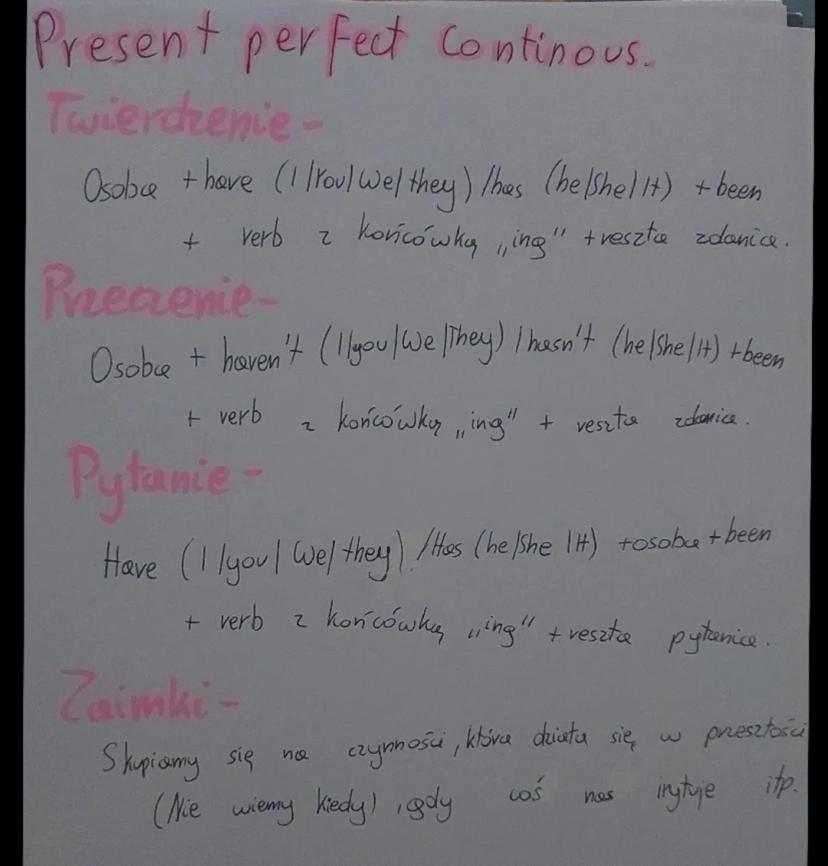 Present perfect Continous.
Twierdzenie -
Osoba + have (I/You/We/they) /has (he/She/It) + been
+ verb z końcówką „ing" + reszta zdania.
Przeczenie -
Osoba + haven't (I/you/We/They) / hasn't (he/She/It) + been
+ verb z końcówką „ing" + reszta zdania.
Pytanie -
Have (I/you/We/they) /Has (he/She/It) + osoba + been
+ verb z końcówką „ing" + reszta pytania.
Zaimki -
Skupiamy się na czynności, która działa się w przeszłości
(Nie wiemy kiedy), gdy coś nas irytuje itp.